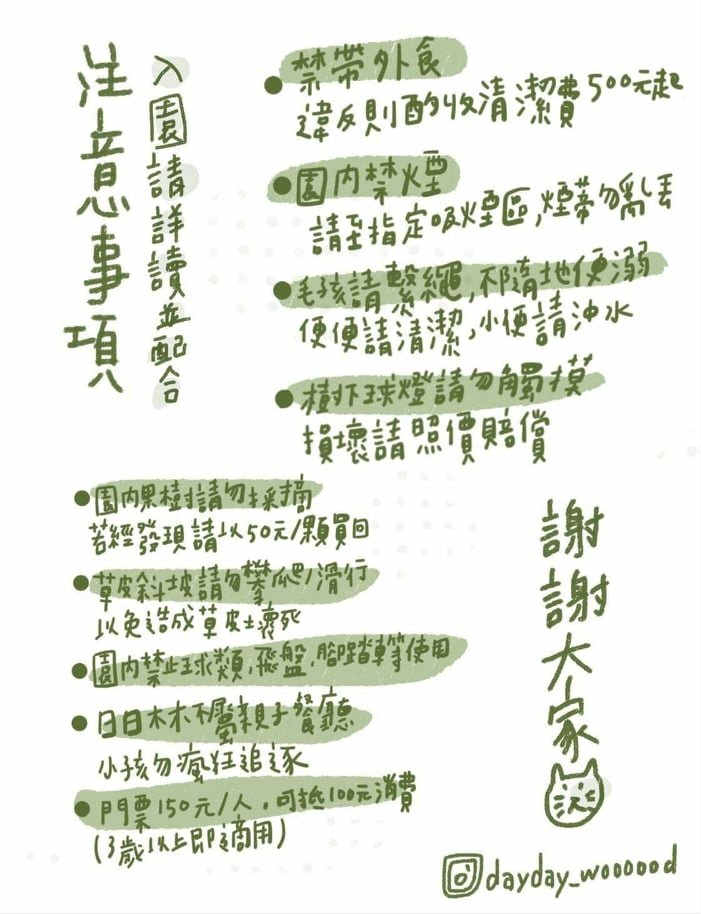 注意事項
入園請詳讀並配合
禁帶外食
違反則酌收清潔費500元起
園內禁煙
請至指定吸煙區,煙蒂勿亂丟
毛孩請繫繩,不隨地便溺
便便請清潔,小便請沖水
樹下球燈請勿觸摸
損壞請照價賠償
園內果樹請勿採摘
若經發現請以50元/顆買回
草皮斜坡請勿攀爬/滑行
以免造成草皮土壞死
園內禁止球類,飛盤,腳踏車等使用
日日木木不屬親子餐廳
小孩勿瘋狂追逐
門票150元/人,可抵100元消費
(3歲以上即適用)
謝謝大家
dayday_woooood